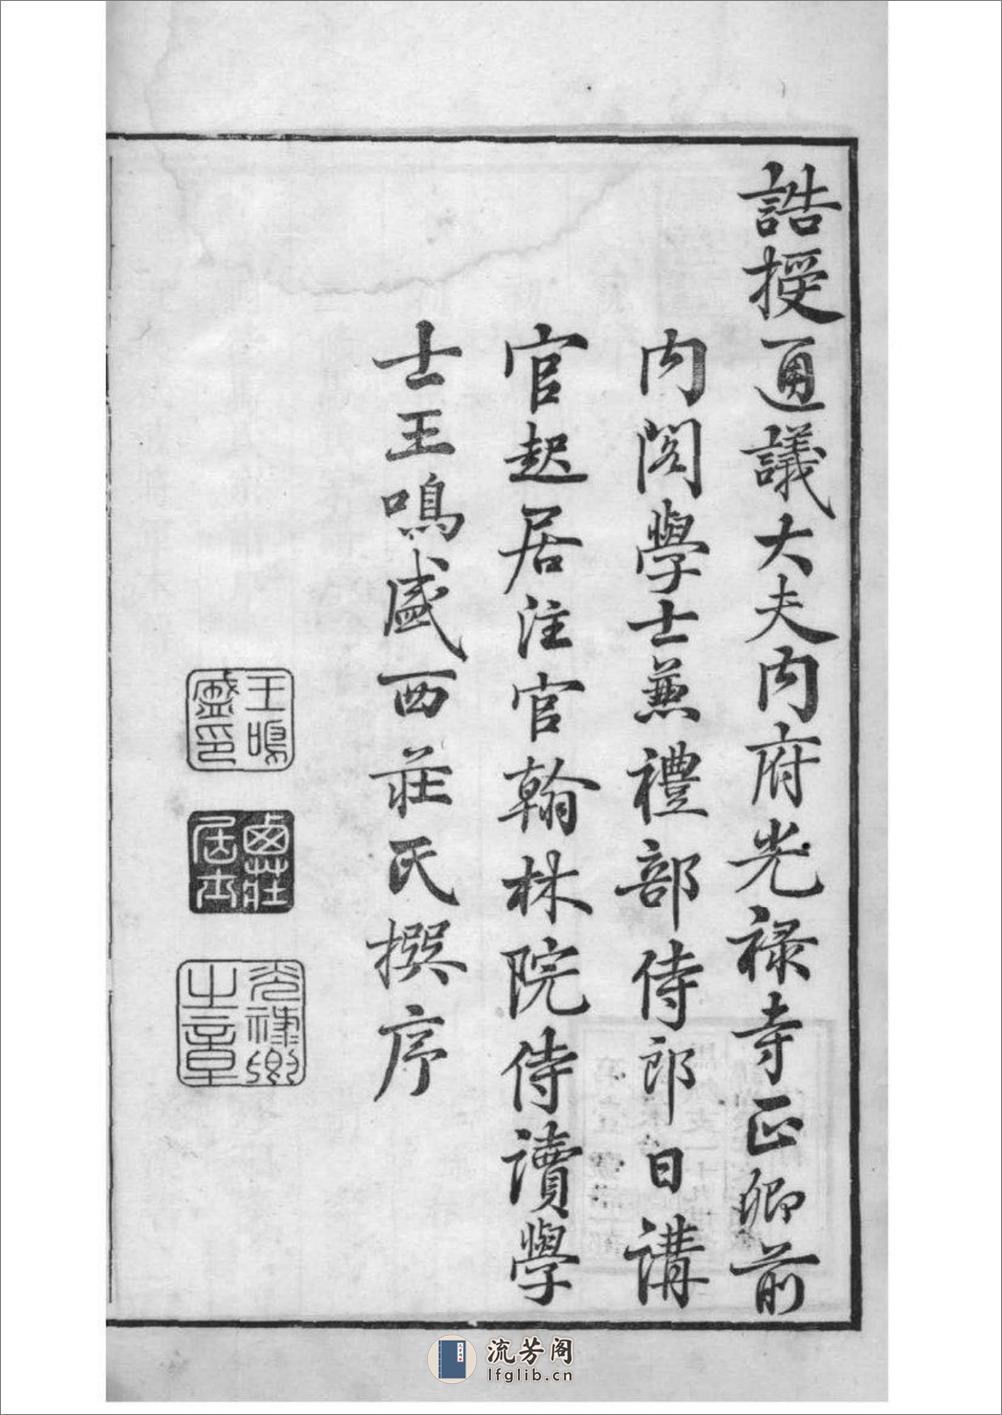 誥授通議大夫内府光祿寺正卿前
内閣學士兼禮部侍郎日講
官起居注官翰林院侍讀學
士王鳴盛西莊氏撰序
王鳴盛印
西莊居士
光祿卿之章
流芳阁
lfglib.cn